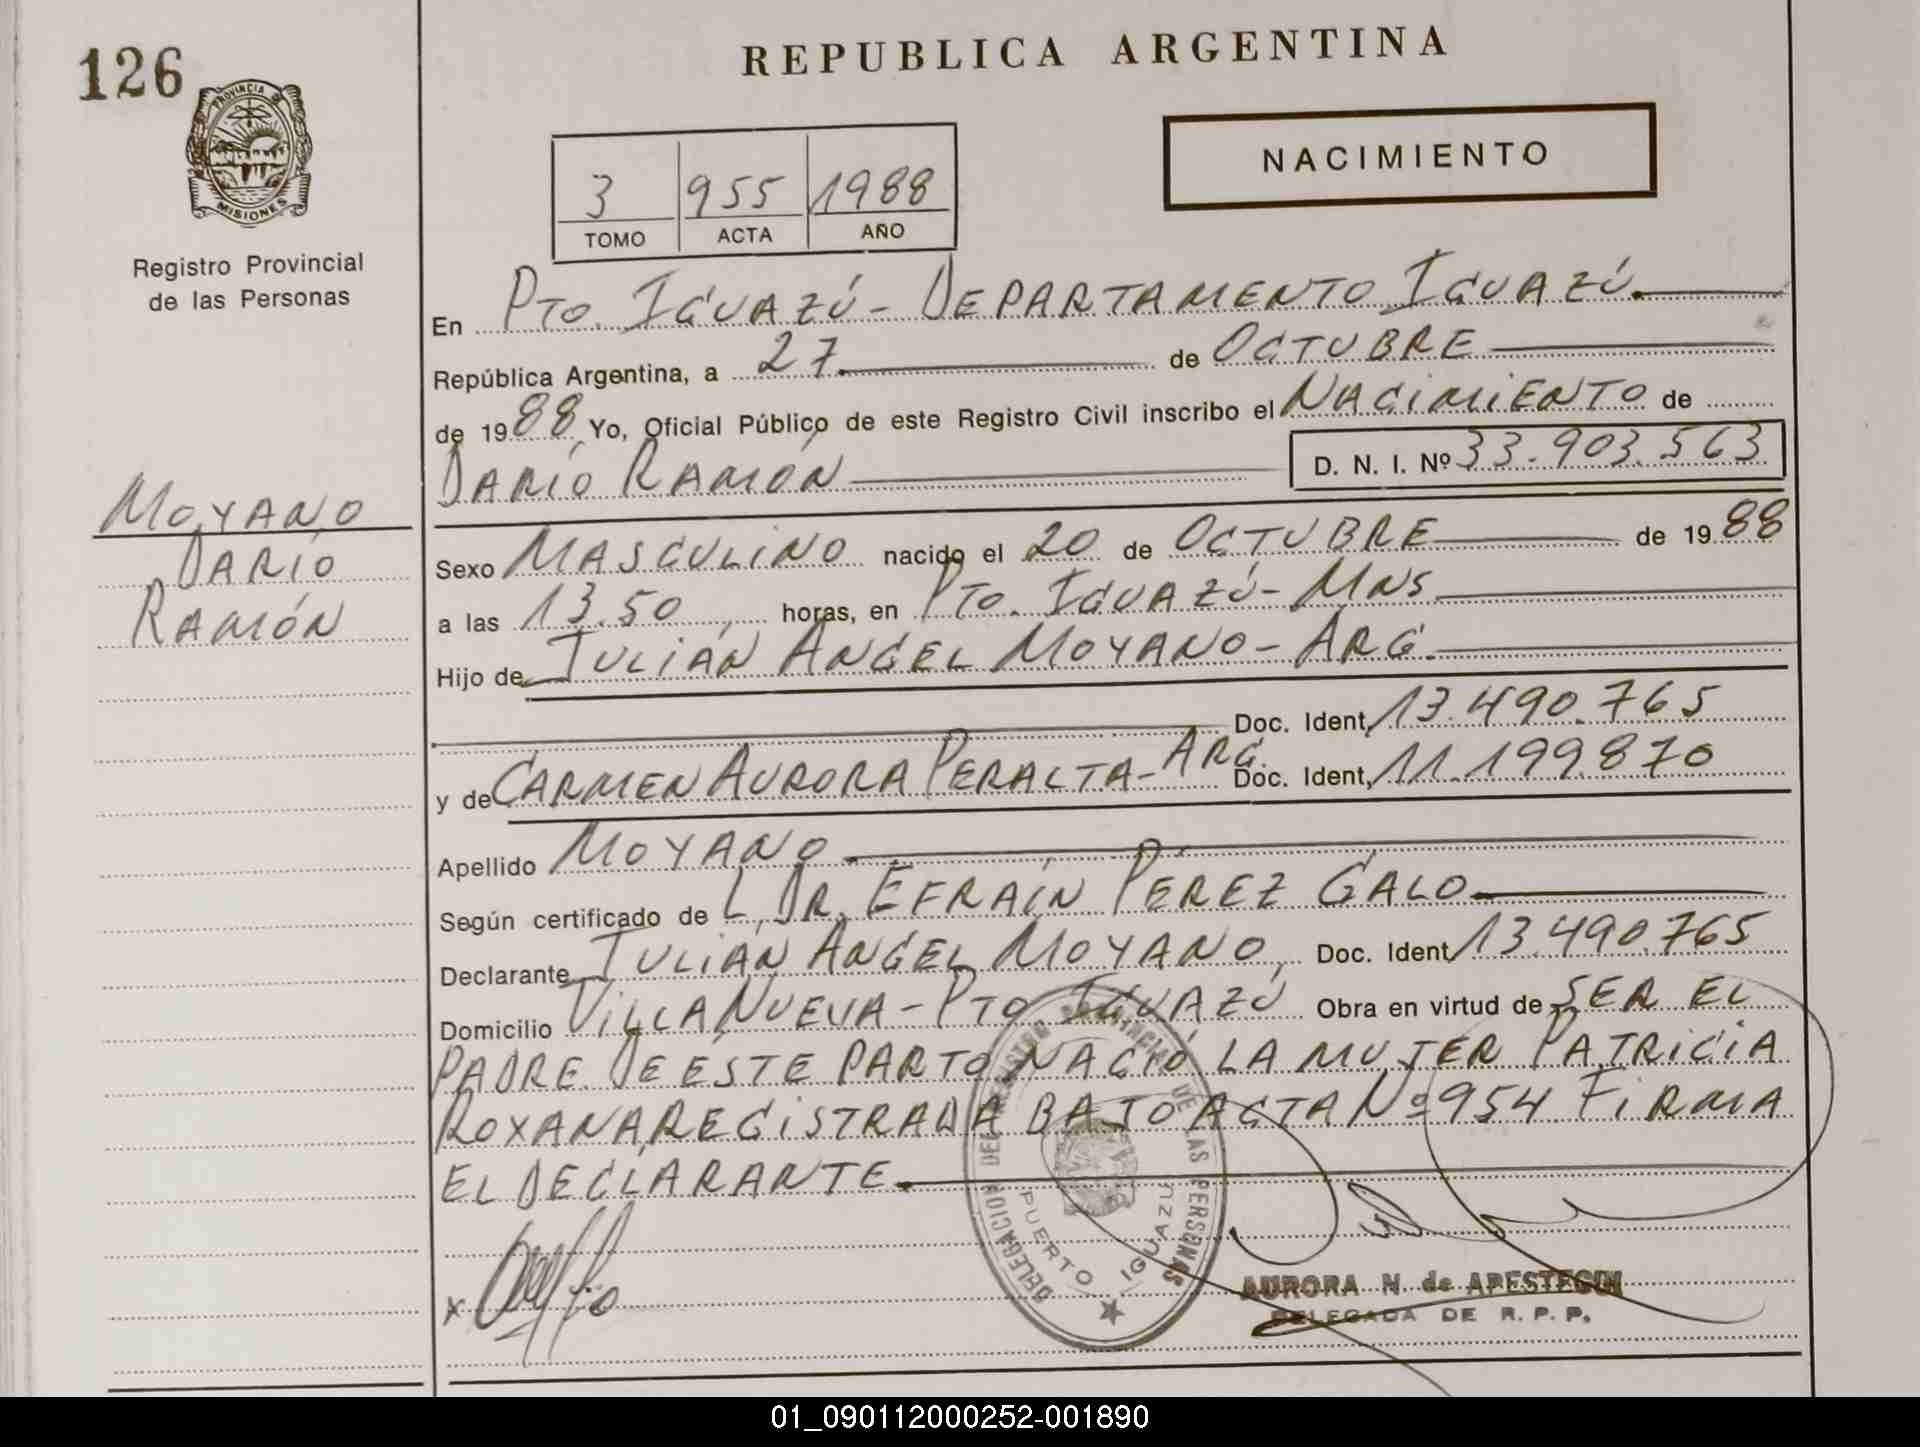 126
REPUBLICA ARGENTINA
PROVINCIA
MISIONES
Registro Provincial
de las Personas
3 955 1988
TOMO ACTA AÑO
NACIMIENTO
En PTO. IGUAZÚ - DEPARTAMENTO IGUAZÚ.
República Argentina, a 27 de OCTUBRE
de 1988 Yo, Oficial Público de este Registro Civil inscribo el NACIMIENTO de
DARÍO RAMÓN D. N. I. Nº 33.903.563
MOYANO
DARÍO
RAMÓN
Sexo MASCULINO nacido el 20 de OCTUBRE de 1988
a las 13.50 horas, en PTO. IGUAZÚ - MNS
Hijo de JULIÁN ANGEL MOYANO - ARG.
Doc. Ident. 13.490.765
y de CARMEN AURORA PERALTA - ARG. Doc. Ident. 11.199.870
Apellido MOYANO
Según certificado de L, DR. EFRAÍN PÉREZ GALO
Declarante JULIÁN ANGEL MOYANO, Doc. Ident. 13.490.765
Domicilio VILLA NUEVA - PTO IGUAZÚ Obra en virtud de SER EL
PADRE. DE ÉSTE PARTO NACIÓ LA MUJER PATRICIA
ROXANA, REGISTRADA BAJO ACTA Nº 954 FIRMA
EL DECLARANTE.
DELEGACION DEL REGISTRO PROVINCIAL DE LAS PERSONAS
PUERTO IGUAZU
x
AURORA N. de APESTEGUI
DELEGADA DE R. P. P.
01_090112000252-001890